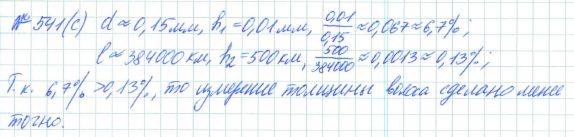 № 541(с) d ≈ 0,15мм, h₁ = 0,01мм, 0,01/0,15 ≈ 0,067 ≈ 6,7%;
l ≈ 384000 км, h₂ = 500км, 500/384000 ≈ 0,0013 ≈ 0,13%;
Т.к. 6,7% > 0,13%, то измерение толщины волоса сделано менее
точно.